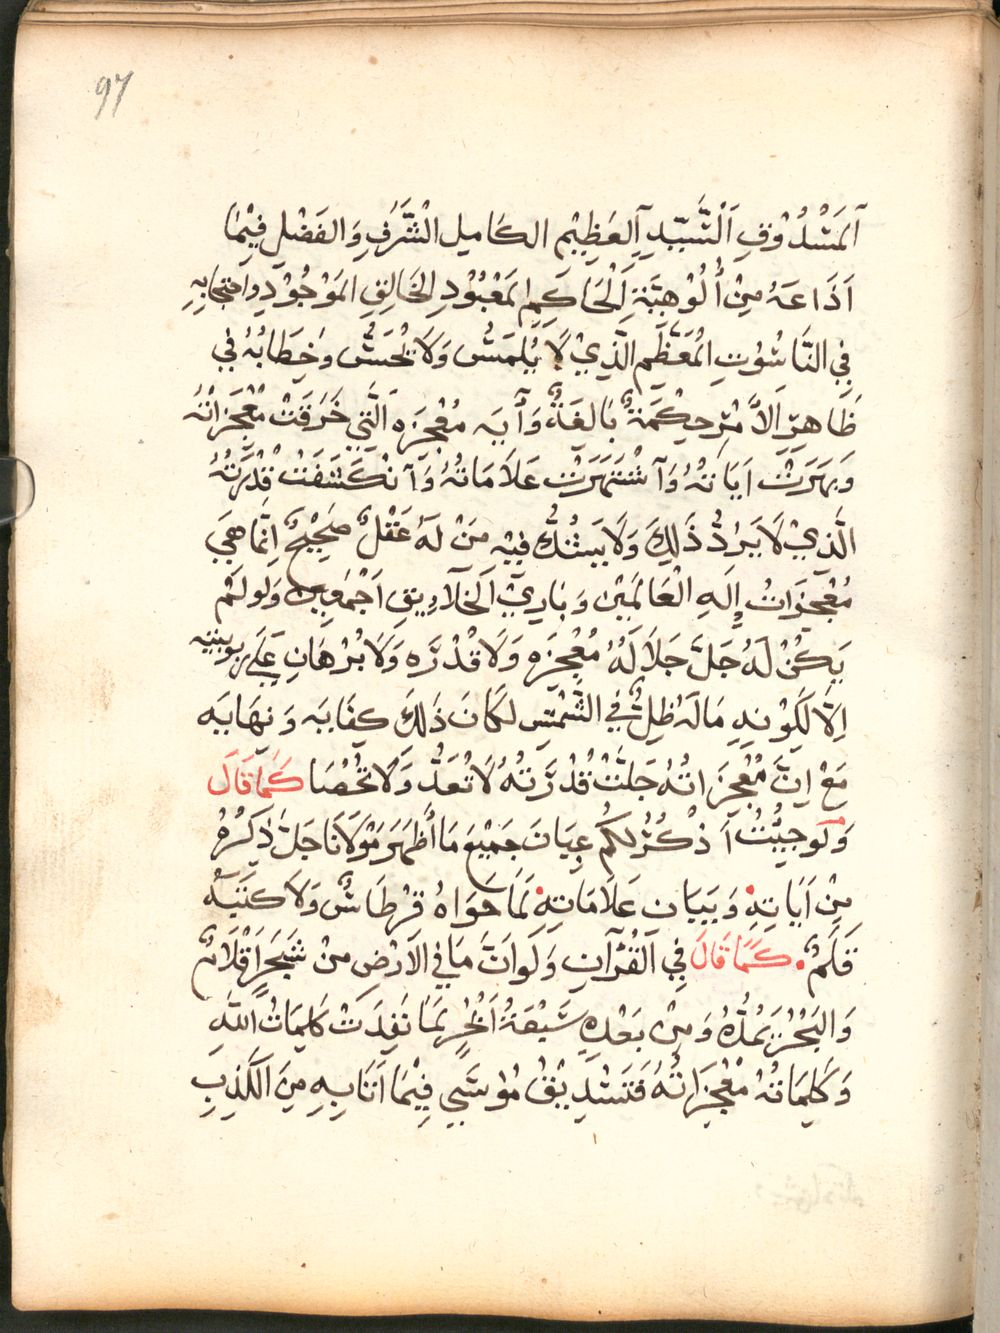 97
اَلمَشْدُوْقِ اَلسَّيّدِ اَلعَظِيْمِ الكَاميل الشَّرَفِ وَالفَضْلِ فِيْمَا
اَذَاعَهُ مِنْ أُلُوْهِيَّةِ اَلْحَاكِمِ المَعْبُوْدِ الخَالِقِ المَوْجُوْدِ واحتجابِهِ
فِي النَّاسُوْتِ المُعَظَّمِ الَّذِيْ لَا يُلمَسُّ وَلَا يُحَسُّ وَخِطَابُهُ فِي
ظَاهِرِ حِكْمَةٌ بَالغَةٌ وَآيَه مُعْجِزَه الَّتِي خَرَقَتْ مُعْجِزَاتُهُ
وَبَهَرَتْ اَيَاتُهُ وَآشْتَهَرَتْ عَلَامَاتُهُ وَآنْكَشَفَتْ قُدْرَتُهُ
الَّذِيْ لَا يَرُدُّ ذَلِكَ وَلَا يَشُكُّ فِيْهِ مَنْ لَهُ عَقْلٌ صَحِيْحٌ اِنَّمَا هِيَ
مُعْجِزَاتُ إِلَهِ الْعَالَمِيْن وَبَارِيْ الخَلَارِيقِ اَجْمَعِين وَلَو لَمْ
يَكُنْ لَهُ جَلَّ جَلَالَهُ مُعْجِزَه وَلَا قُدْرَه وَلَا بُرْهَانِ عَلَى رُبوبيته
اِلَّا لَكَوْنِهِ مَا لَهُ ظِلٌّ فِي الشَّمْسِ لكَانَ ذَلِكَ كِفَايَه وَنِهَايَه
مَعْ اِنَّ مُعْجِزَاتُهُ جَلَّتْ قُدْرَتُهُ لَا تُعَدُّ وَلَا تُحْصَا كَمَا قَالَ
وَلَو جِيْتُ اَذْكُرُ لكُم عِيَانَ جَمِيْعَ مَا أَظْهَرَ مَوْلَانَا جَلَّ ذِكرُهُ
مِنْ اَيَاتِهِ وَبَيَان عَلَامَاتِهِ لَمَا حَوَاهُ قِرْطَاسٌ وَلَا كَتَبَهُ
قَلَمٌ كَمَا قَالَ فِي القُرْآنِ وَلَو اَنَّ مَا فِي الاَرْضِ مِنْ شَجَرٍ اَقْلَامٌ
وَالبَحْرُ يَمُدُّهُ وَمِنْ بَعْدِهِ سَبْعَةُ اَبْحُرٍ لَمَا نَفِدَتْ كَلِمَاتُ اللهِ
وَكَلِمَاتُهُ مُعْجِزَاتُهُ فَتَسْدِيْقُ مُوْسَى فِيْمَا اَتَا بِهِ مِنَ الكَذِبِ